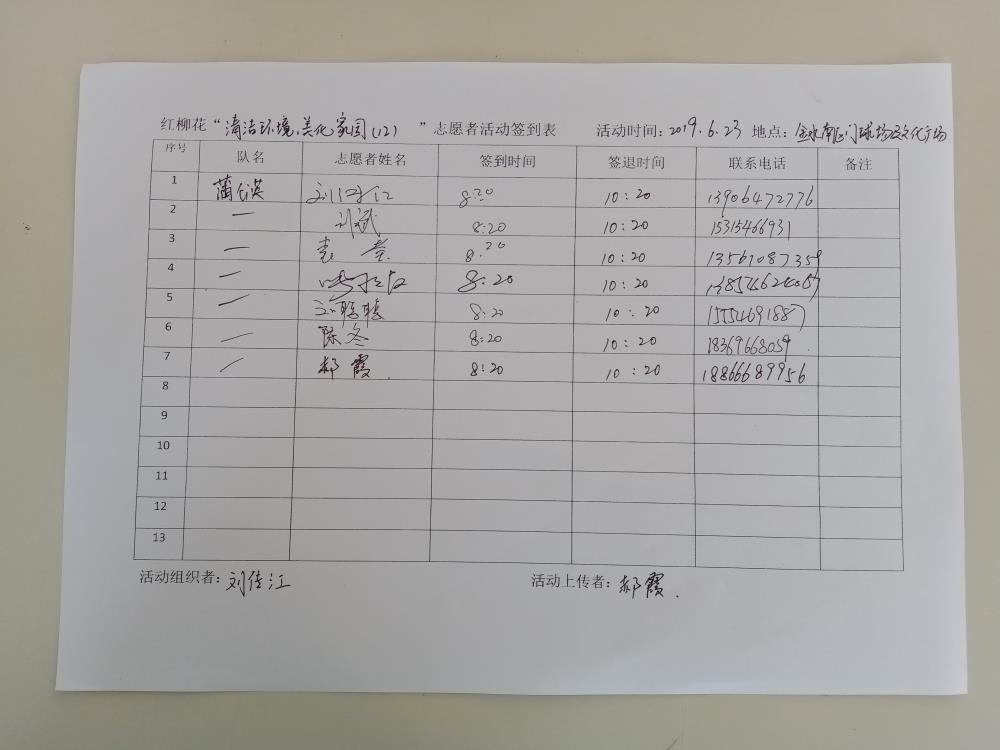 红柳花“清洁环境,美化家园(12)”志愿者活动签到表 活动时间:2019.6.23 地点:金水南门球场及文化广场
序号 队名 志愿者姓名 签到时间 签退时间 联系电话 备注
1 蒲公英 8:20 10:20 13906472776
2 一 刘斌 8:20 10:20 15315466931
3 一 袁 8:20 10:20 13561087359
4 一 8:20 10:20
5 一 8:20 10:20 15554691887
6 一 陈冬 8:20 10:20 18369668059
7 一 郝霞. 8:20 10:20 18866689956
8
9
10
11
12
13
活动组织者:刘传江 活动上传者:郝霞.